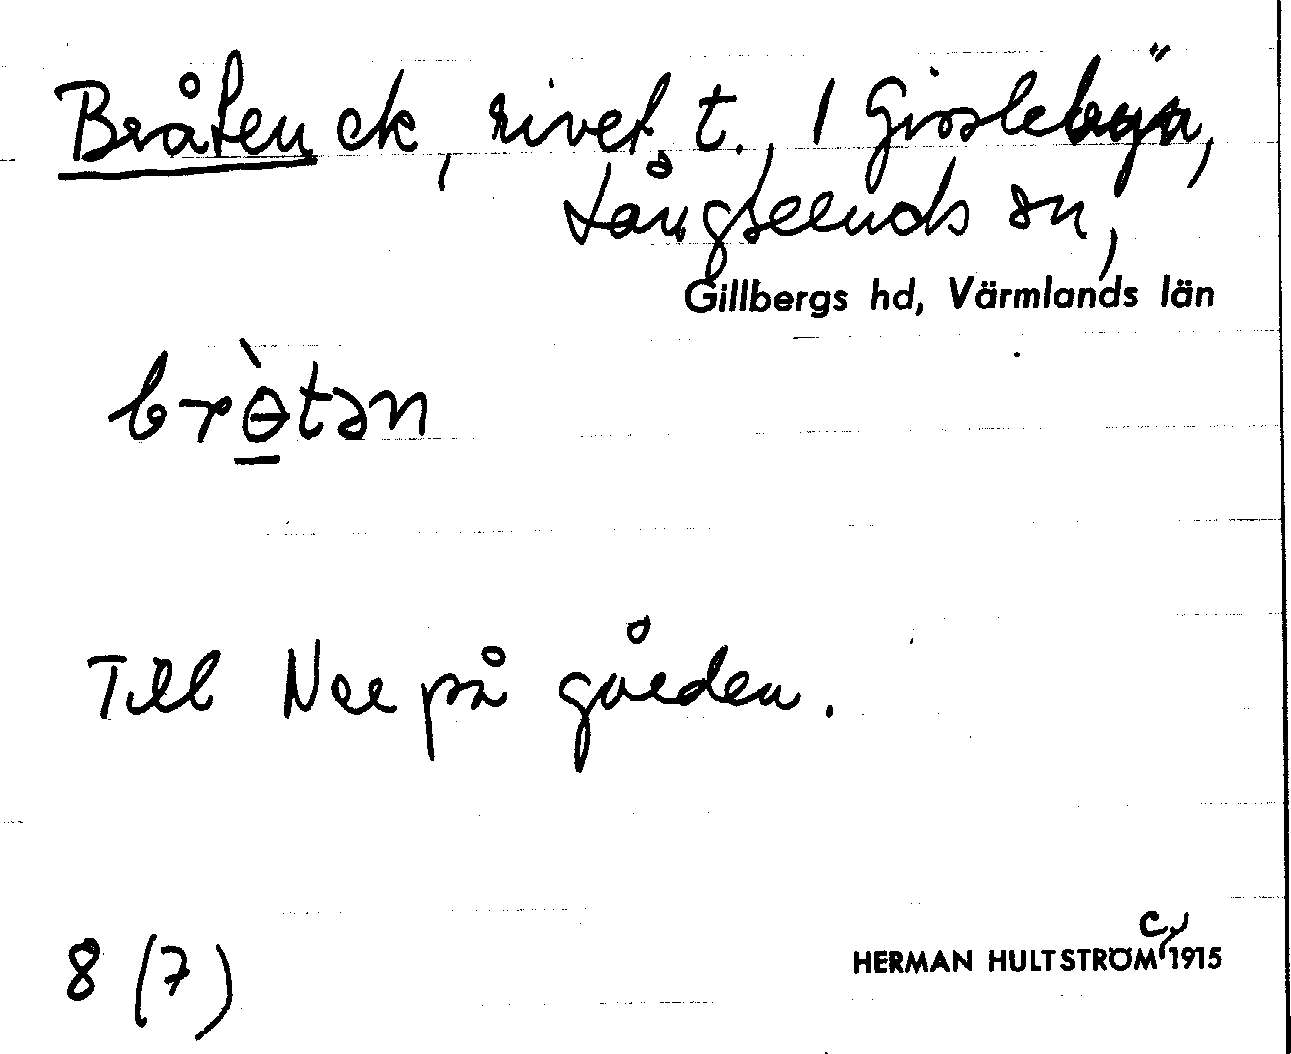 Bråten ek, rivet t., 1 Gisslebyn,
Långseruds sn,
Gillbergs hd, Värmlands län
brɵ̀tən
Till Ner på gården.
8 (7)
HERMAN HULTSTRÖM c 1915